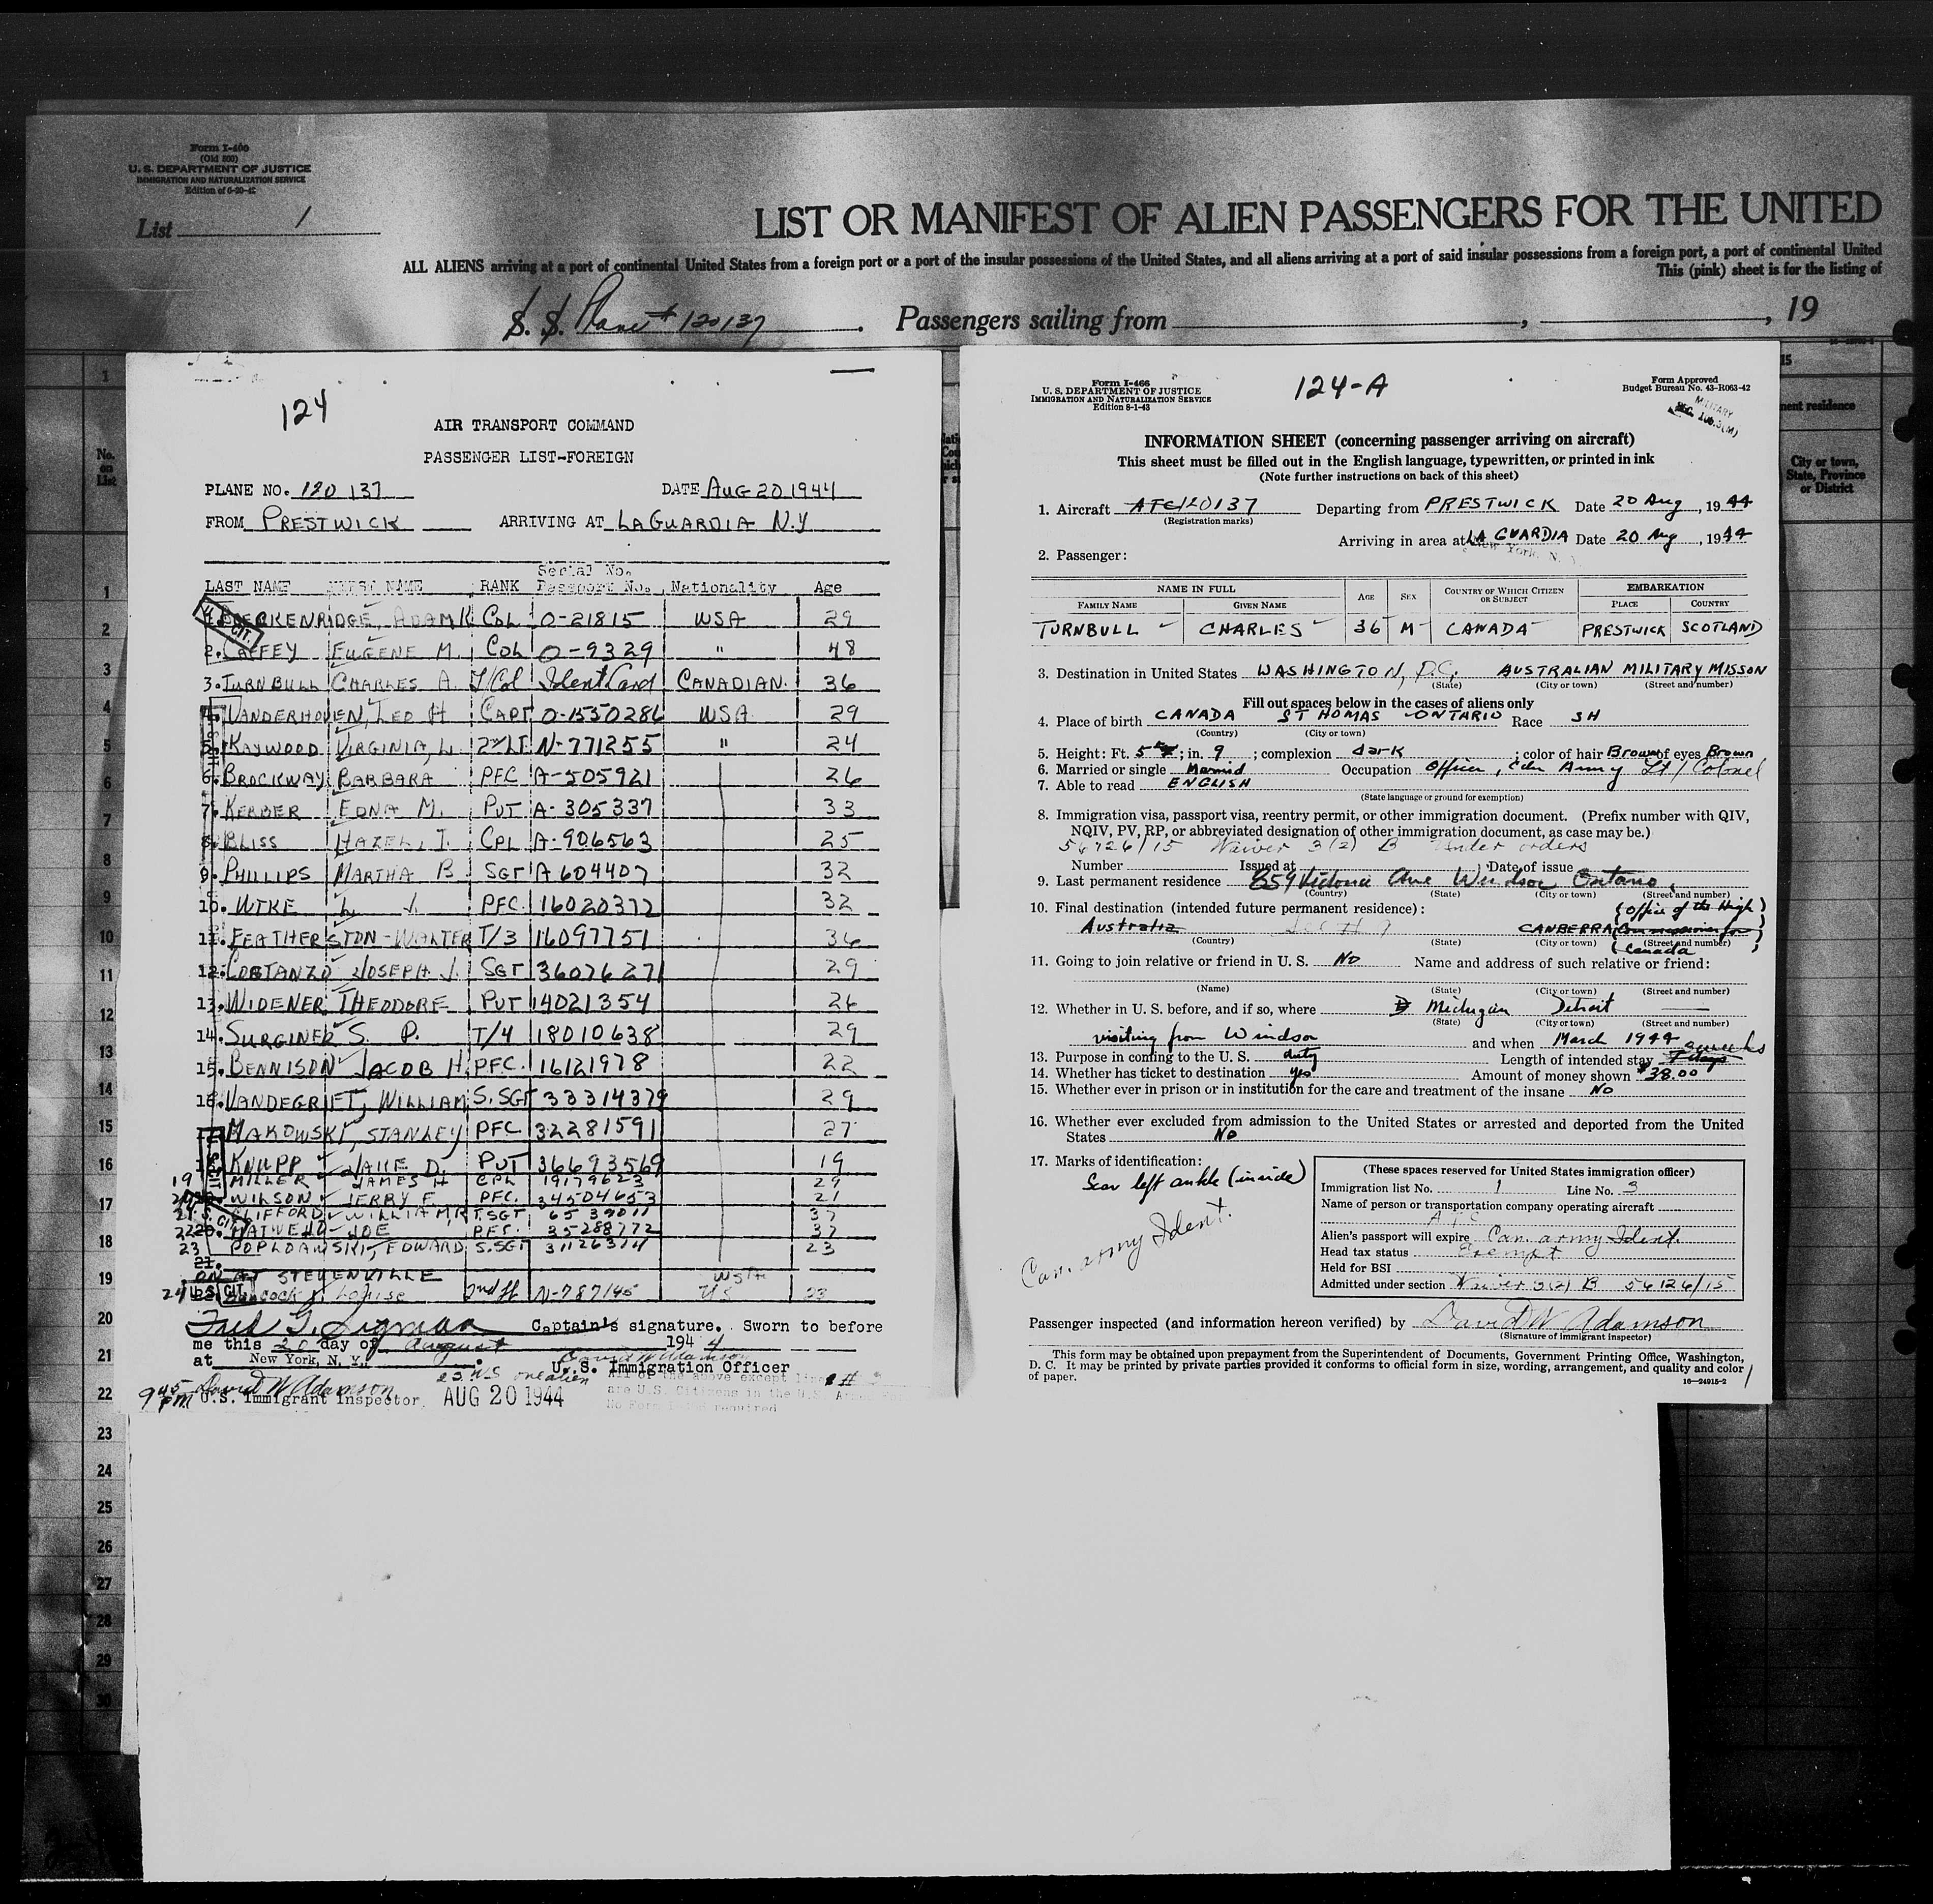 Form I-400
(Old 500)
U. S. DEPARTMENT OF JUSTICE
IMMIGRATION AND NATURALIZATION SERVICE
List 1
LIST OR MANIFEST OF ALIEN PASSENGERS FOR THE UNITED
ALL ALIENS arriving at a port of continental United States from a foreign port or a port of the insular possessions of the United States, and all aliens arriving at a port of said insular possessions from a foreign port, a port of continental United
This (pink) sheet is for the listing of
S. S. Plane # 120137. Passengers sailing from , , 19
124
AIR TRANSPORT COMMAND
PASSENGER LIST-FOREIGN
PLANE NO. 120 137 DATE AUG 20 1944
FROM PRESTWICK ARRIVING AT LAGUARDIA N.Y
Serial No.
LAST NAME FIRST NAME RANK Passport No. Nationality Age
BRECKENRIDGE, ADAM K COL O-21815 USA 29
2. CAFFEY EUGENE M. COL O-9329 " 48
3. TURNBULL CHARLES A. L/Col Ident Card CANADIAN. 36
4. VANDERHOVEN, LEO H CAPT O-1550286 USA 29
5. KAYWOOD VIRGINIA, L. 2nd LT N-771255 " 24
6. BROCKWAY BARBARA PFC A-505921 26
7. KERBER EDNA M. PVT A-305337 33
8. BLISS HAZEL, I. CPL A-906563 25
9. PHILLIPS MARTHA B SGT A 604407 32
10. WTKE L. J. PFC 16020372 32
11. FEATHERSTON-WALTER T/3 16097751 36
12. COSTANZO JOSEPH J. SGT 36076271 29
13. WIDENER THEODORE PVT 14021354 26
14. SURGINER S. P. T/4 18010638 29
15. BENNISON JACOB H. PFC. 16121978 22
16. VANDEGRIFT, WILLIAM S. SGT 33314379 29
MAKOWSKI, STANLEY PFC 32281591 27
KNUPP JAKE D. PVT 36693569 19
19 MILLER JAMES H CPL 19179623 29
WILSON JERRY F. PFC. 34504653 21
CLIFFORD WILLIAM R T. SGT 37
HATWELD JOE PFC. 35288772 37
23 POPLOAWSKI, EDWARD S. SGT 31126314 23
ON AT STEVENVILLE
24 Louise 2nd Lt N-787145 US 23
Fred G. Sigman Captain's signature. Sworn to before
me this 20 day of August 1944
at New York, N. Y.
U. S. Immigration Officer
9 45 PM David W Adamson
U.S. Immigrant Inspector. AUG 20 1944
Form I-466
U. S. DEPARTMENT OF JUSTICE
IMMIGRATION AND NATURALIZATION SERVICE
Edition 8-1-43
124-A
Form Approved
Budget Bureau No. 43-R063-42
INFORMATION SHEET (concerning passenger arriving on aircraft)
This sheet must be filled out in the English language, typewritten, or printed in ink
(Note further instructions on back of this sheet)
1. Aircraft ATC120137 Departing from PRESTWICK Date 20 Aug, 1944
(Registration marks)
Arriving in area at LA GUARDIA Date 20 Aug, 1944
2. Passenger:
NAME IN FULL AGE SEX COUNTRY OF WHICH CITIZEN OR SUBJECT EMBARKATION
FAMILY NAME GIVEN NAME PLACE COUNTRY
TURNBULL CHARLES 36 M CANADA PRESTWICK SCOTLAND
3. Destination in United States WASHINGTON, D.C. AUSTRALIAN MILITARY MISSON
(State) (City or town) (Street and number)
Fill out spaces below in the cases of aliens only
4. Place of birth CANADA ST THOMAS ONTARIO Race SH
(Country) (City or town)
5. Height: Ft. 5; in. 9; complexion dark; color of hair Brown of eyes Brown
6. Married or single Married Occupation Officer, Cdn Army Lt/Colonel
7. Able to read ENGLISH
(State language or ground for exemption)
8. Immigration visa, passport visa, reentry permit, or other immigration document. (Prefix number with QIV,
NQIV, PV, RP, or abbreviated designation of other immigration document, as case may be.)
56126/15 Waiver 3(2) B Under orders
Number Issued at Date of issue
9. Last permanent residence 859 Victoria Ave Windsor Ontario
(Country) (State) (City or town) (Street and number)
10. Final destination (intended future permanent residence): (Office of the High
Australia CANBERRA (Commissioner for
(Country) (State) (City or town) (Street and number)
(Canada)
11. Going to join relative or friend in U. S. No Name and address of such relative or friend:
(Name) (State) (City or town) (Street and number)
12. Whether in U. S. before, and if so, where Michigan Detroit
(State) (City or town) (Street and number)
visiting from Windsor and when March 1944
13. Purpose in coming to the U. S. duty Length of intended stay 7 days weeks
14. Whether has ticket to destination yes Amount of money shown $38.00
15. Whether ever in prison or in institution for the care and treatment of the insane No
16. Whether ever excluded from admission to the United States or arrested and deported from the United
States No
17. Marks of identification:
Scar left ankle (inside)
Can. army Ident.
(These spaces reserved for United States immigration officer)
Immigration list No. 1 Line No. 3
Name of person or transportation company operating aircraft
ATC
Alien's passport will expire Can. army Ident.
Head tax status Exempt
Held for BSI
Admitted under section Waiver 3(2) B 56126/15
Passenger inspected (and information hereon verified) by David W Adamson
(Signature of immigrant inspector)
This form may be obtained upon prepayment from the Superintendent of Documents, Government Printing Office, Washington,
D. C. It may be printed by private parties provided it conforms to official form in size, wording, arrangement, and quality and color
of paper.
16—24915-2